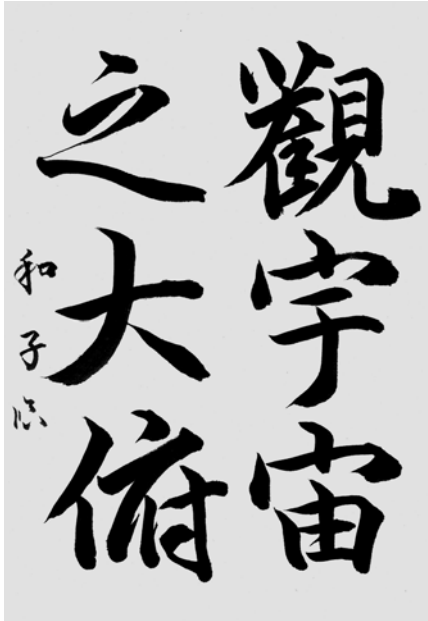 觀宇宙
之大俯
和子臨